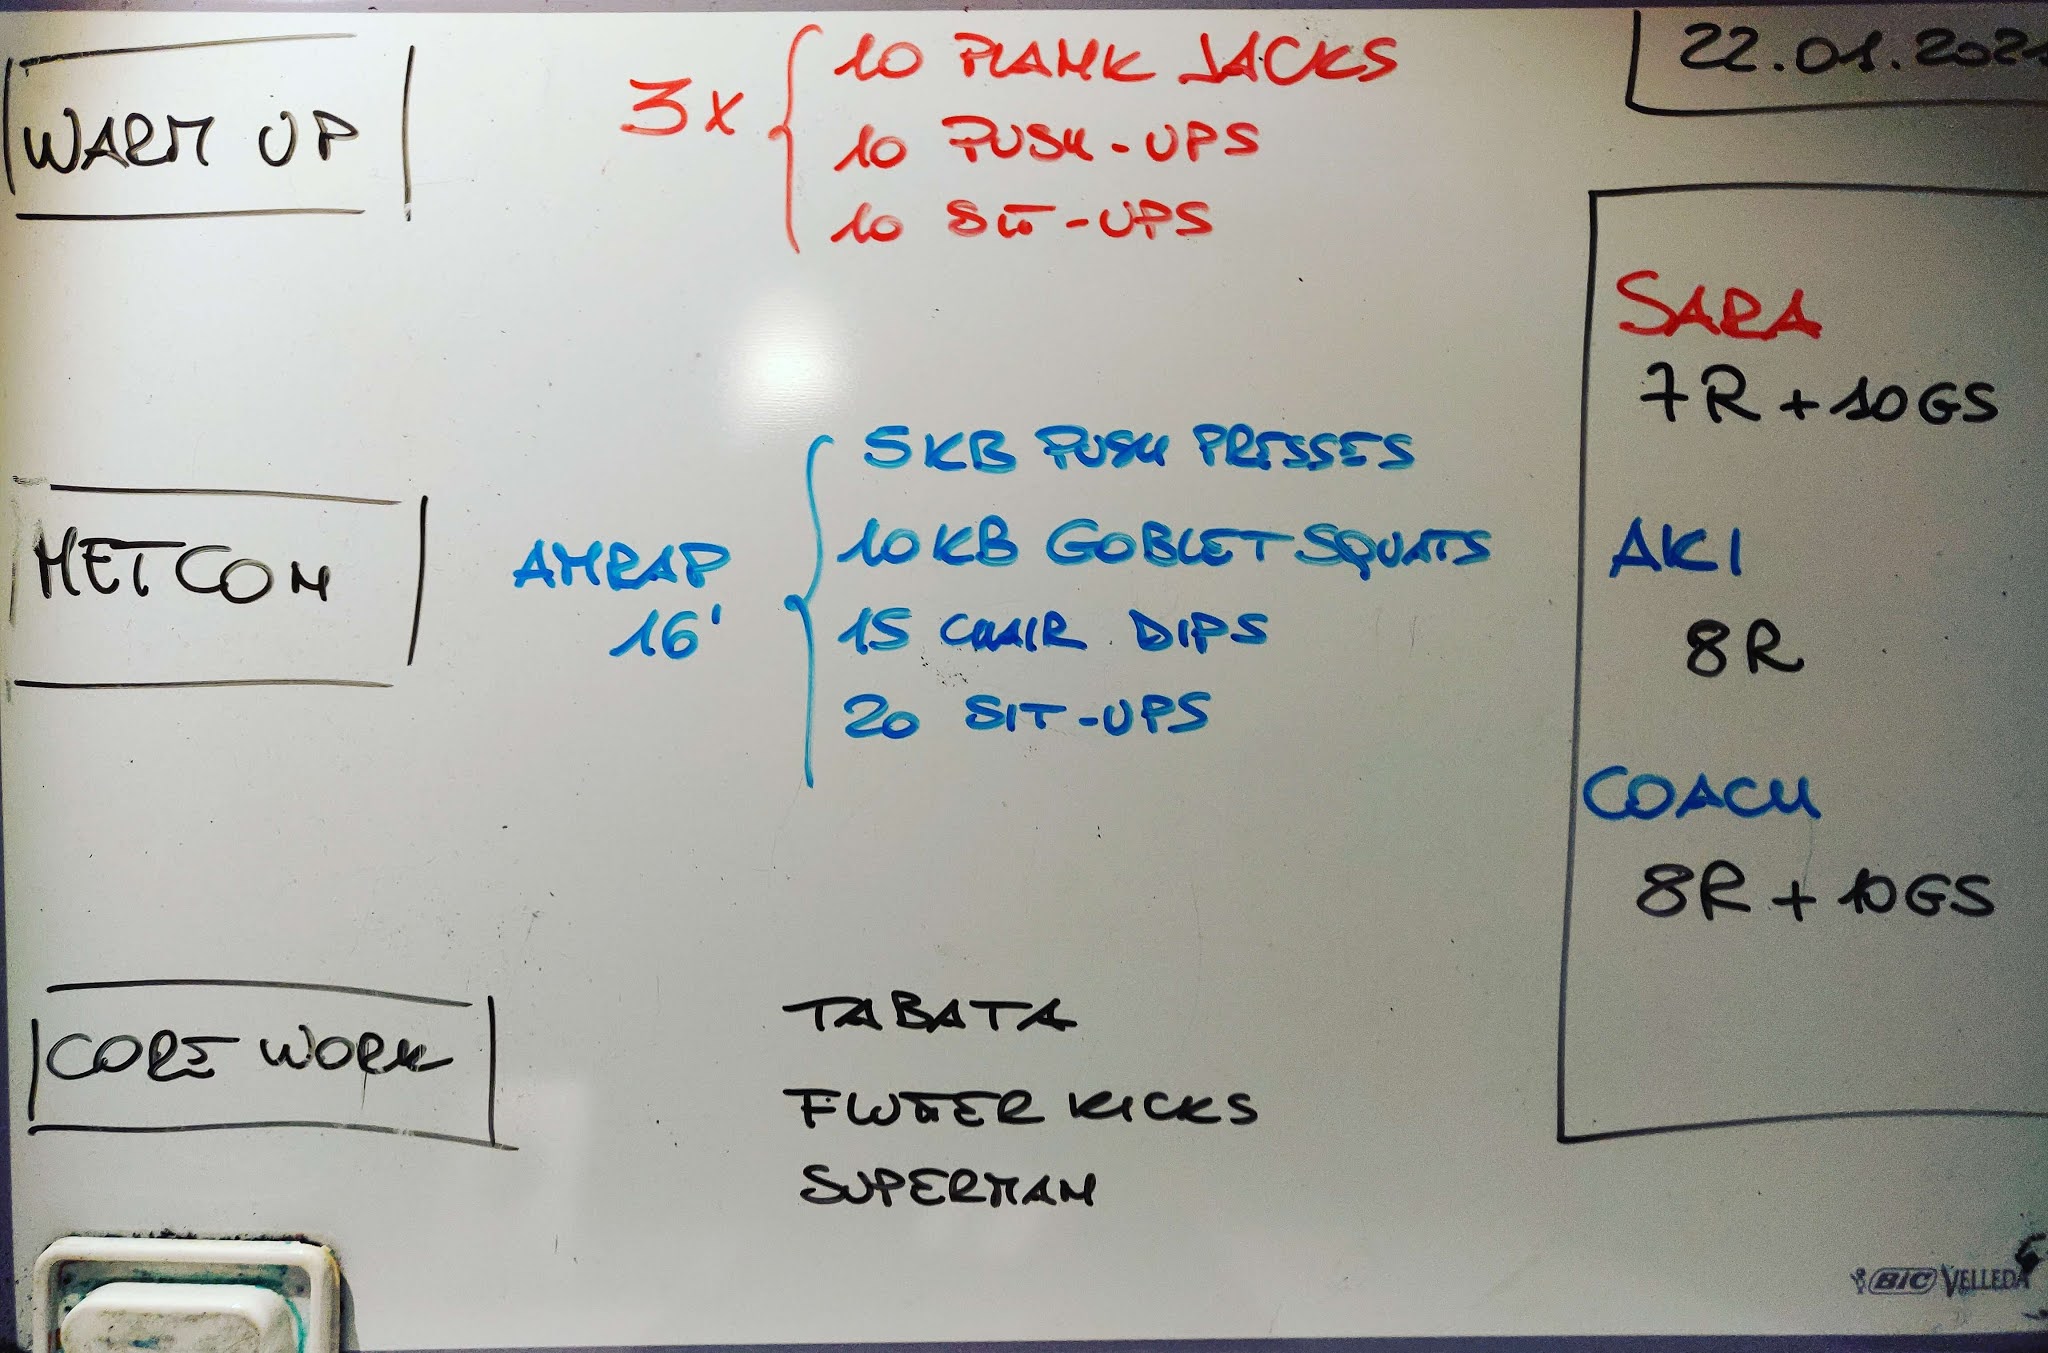 WARM UP
3x
10 PLANK JACKS
10 PUSH-UPS
10 SIT-UPS
22.01.2021
METCON
AMRAP
16'
5 KB PUSH PRESSES
10 KB GOBLET SQUATS
15 CHAIR DIPS
20 SIT-UPS
SARA
7R + 10GS
AKI
8R
COACH
8R + 10GS
CORE WORK
TABATA
FLUTTER KICKS
SUPERMAN
BIC VELLEDA